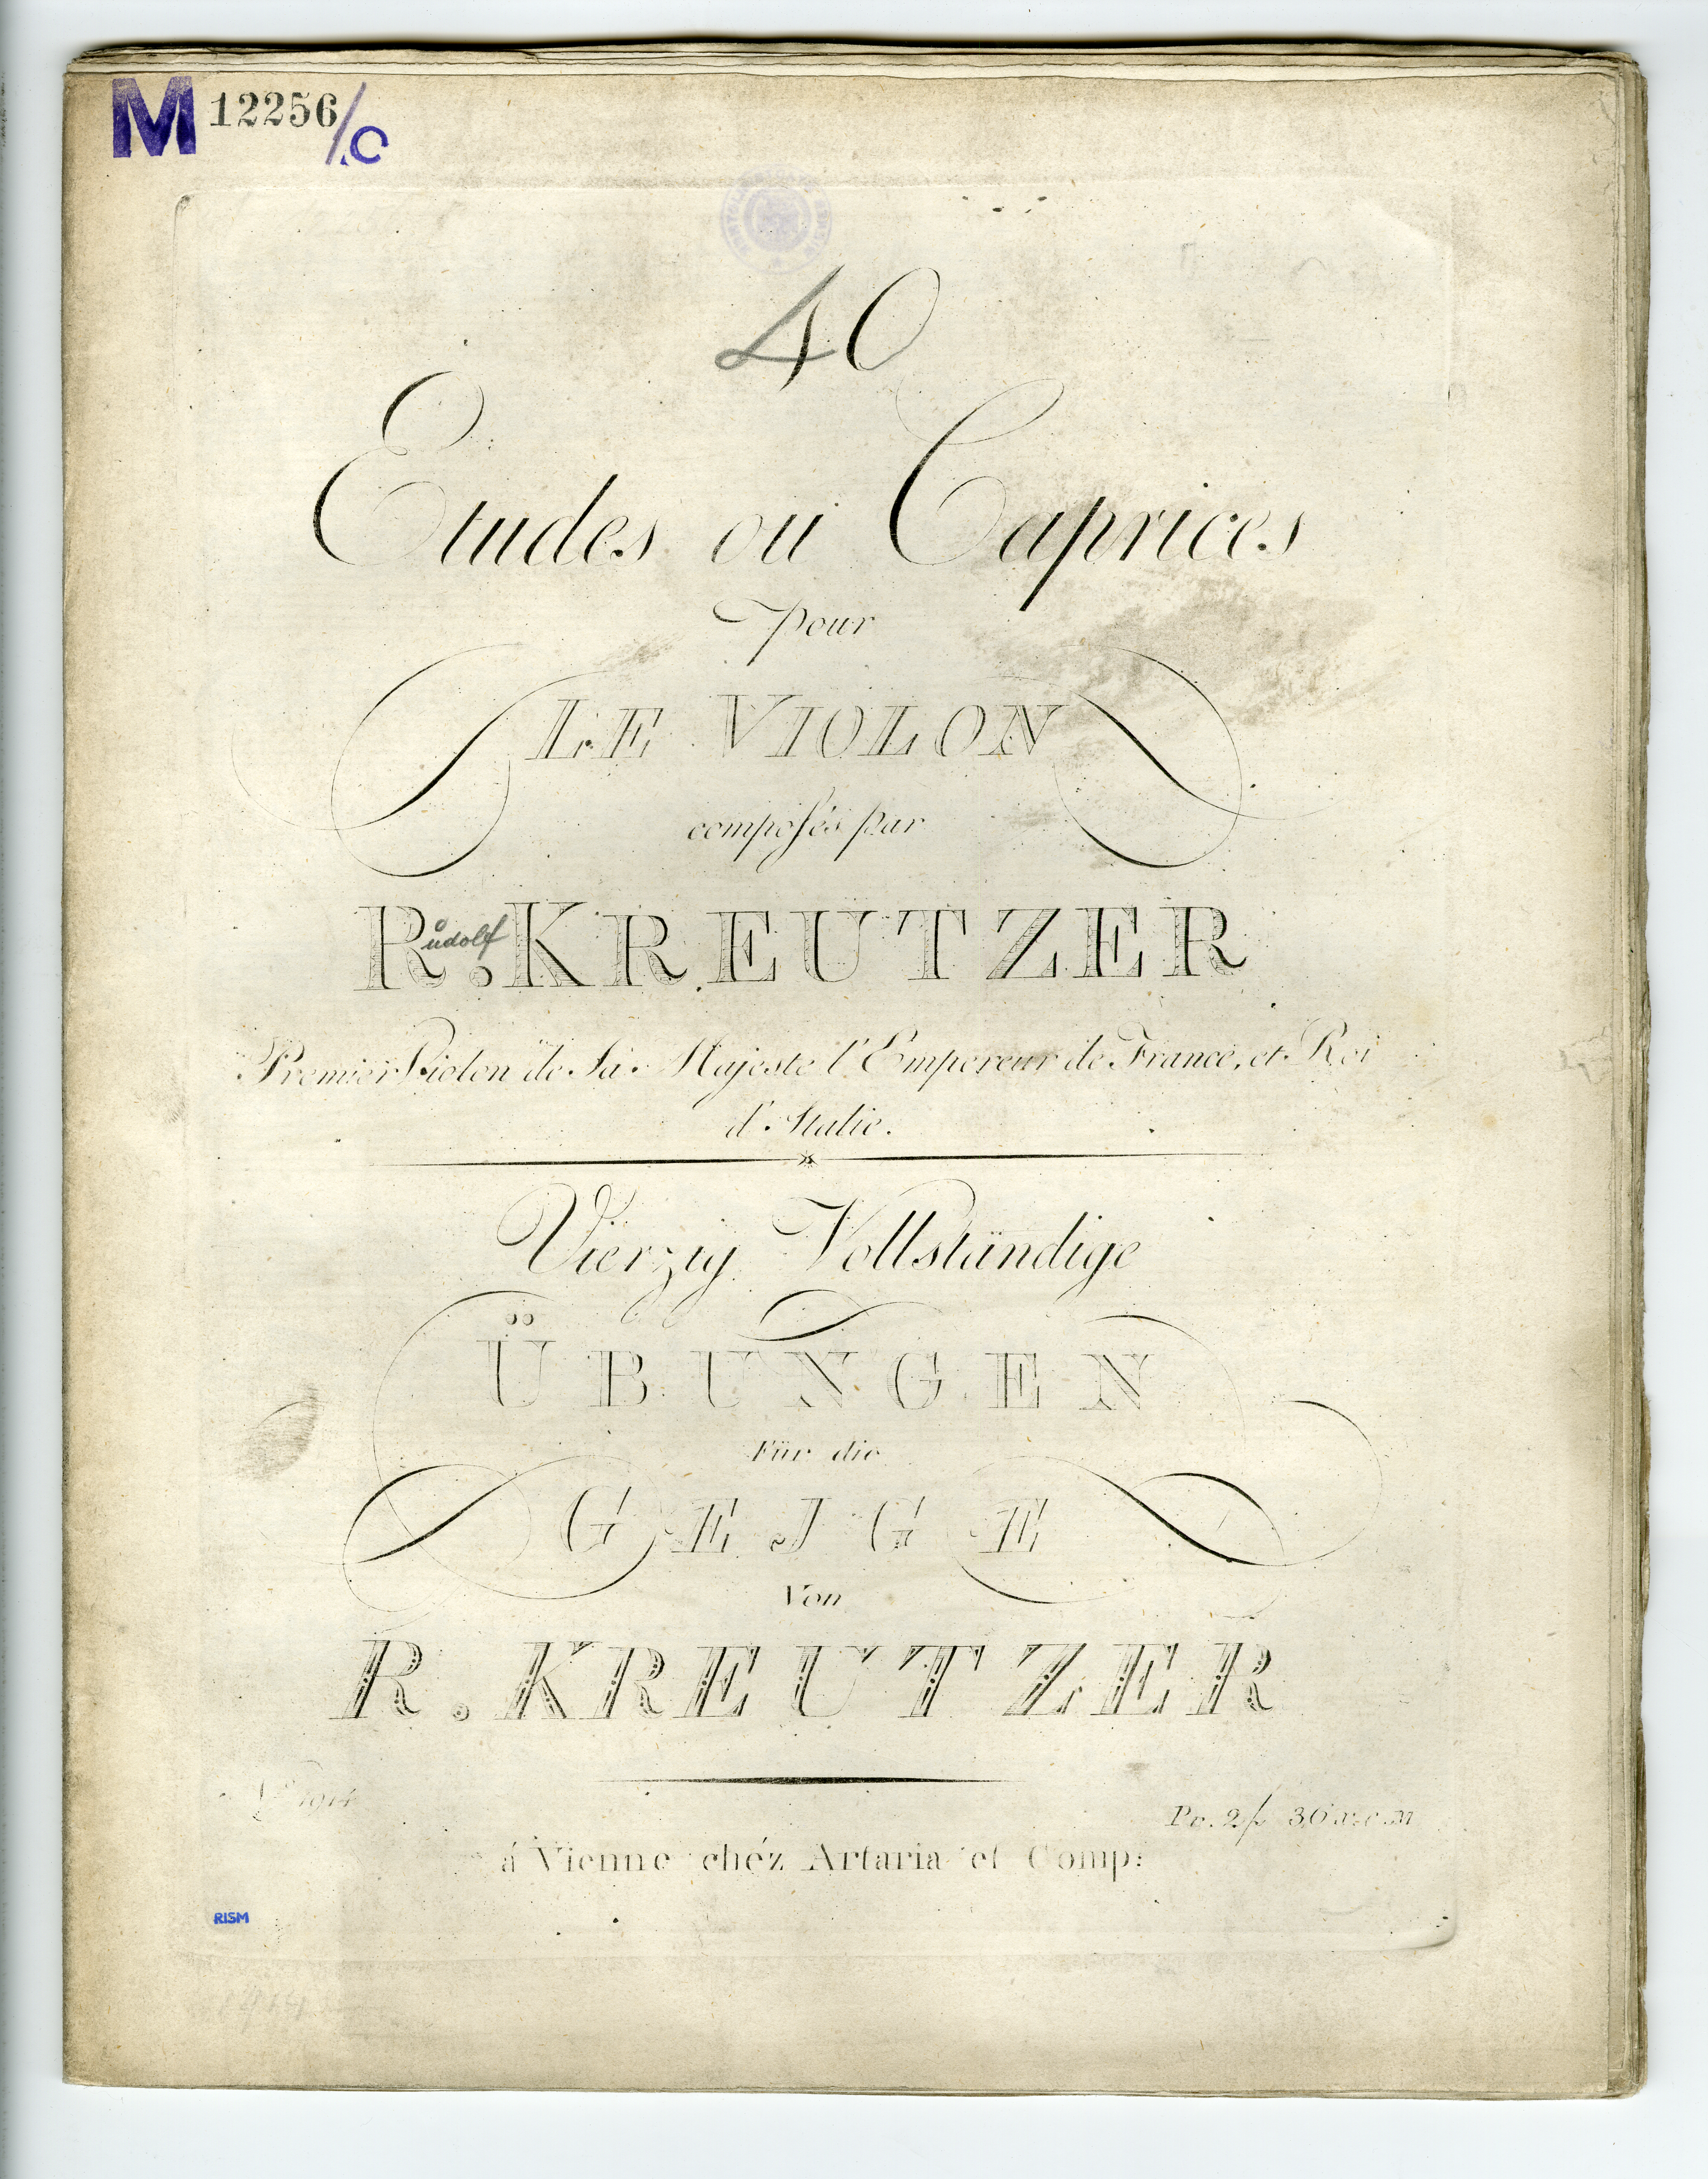 M 12256/C
40
Etudes ou Caprices
pour
LE VIOLON
composés par
Rudolf
R. KREUTZER
Premier Violon de Sa Majeste l'Empereur de France, et Roi
d'Italie.
Vierzig Vollständige
ÜBUNGEN
Für die
GEJGE
Von
R. KREUTZER
Pr. 2f 30 x c m
á Vienne chéz Artaria et Comp:
RISM